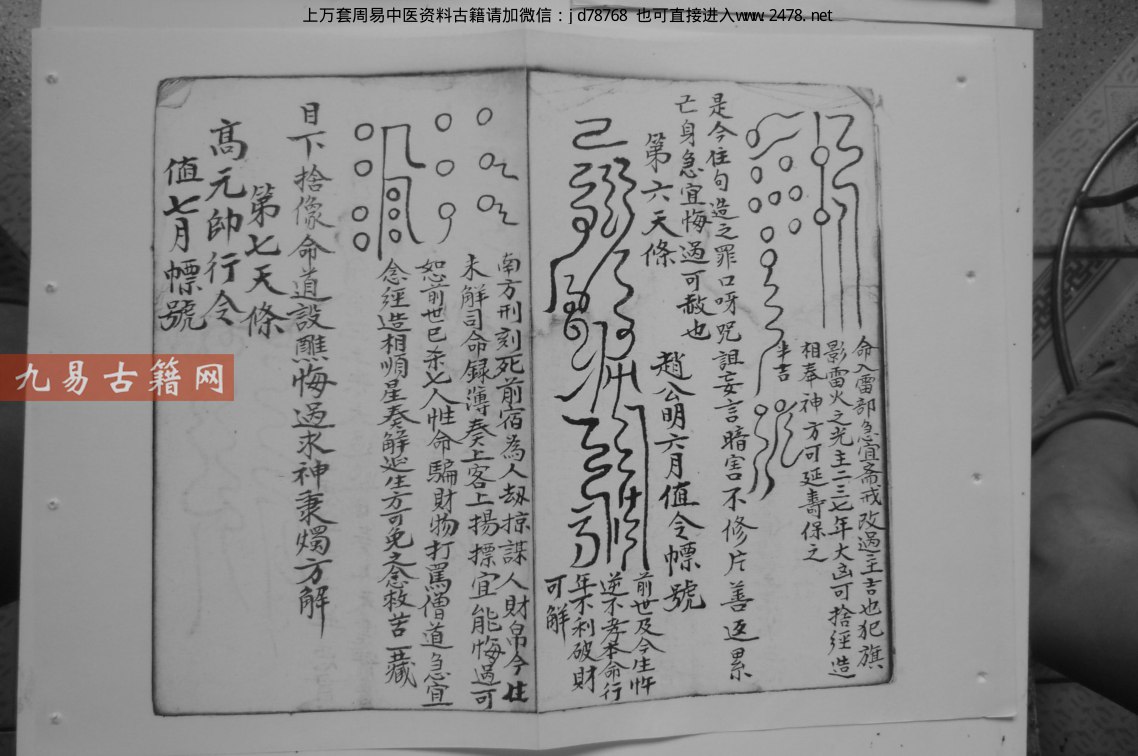 上万套周易中医资料古籍请加微信：jd78768 也可直接进入www.2478.net
命入雷部急宜斋戒改過主吉也犯旗
影雷火之光主二三七年大凶可捨經造
相奉神方可延壽保之
半吉
是今住句造之罪口呀咒詛妄言暗害不修片善返累
亡身急宜悔過可赦也
第六天條
趙公明六月值令幖號
前世及今生忤
逆不孝本命行
年不利破財
可解
南方刑刻死前宿為人劫掠謀人財帛今住
未解司命録薄奏上客上揚摽宜能悔過可
恕前世已杀七人性命騙財物打罵僧道急宜
念經造相順星奏解延生方可免之念救苦一藏
目下捨像命道設醮悔過求神秉燭方解
第七天條
高元帥行令
值七月幖號
九易古籍网